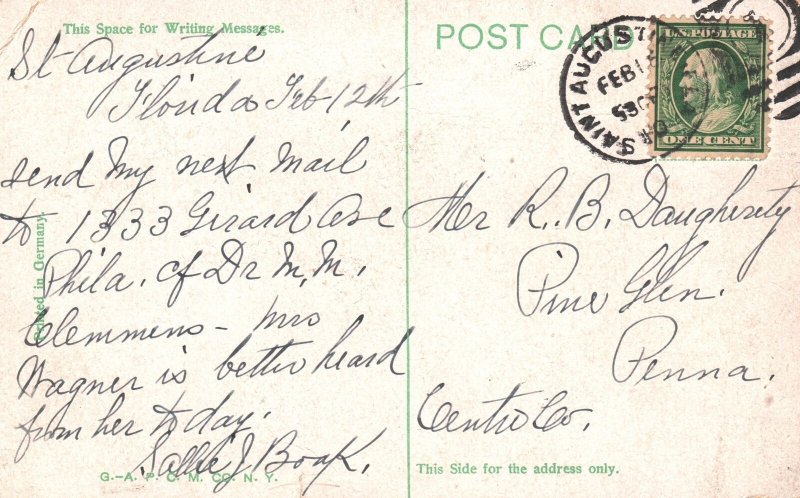 This Space for Writing Messages.
St Augustine
Florida Feb 12th
send My next Mail
to 1333 Girard Ave
Phila. c/o Dr M. M.
Clemmens - Mrs
Wagner is better heard
from her to day.
Sallie J Boak.
Printed in Germany.
G.-A. P. C. M. CO. N. Y.
POST CARD
SAINT AUGUSTINE
FEB 12
U.S. POSTAGE
ONE CENT
Mr R. B. Daugherty
Pine Glen.
Penna.
Centre Co.
This Side for the address only.